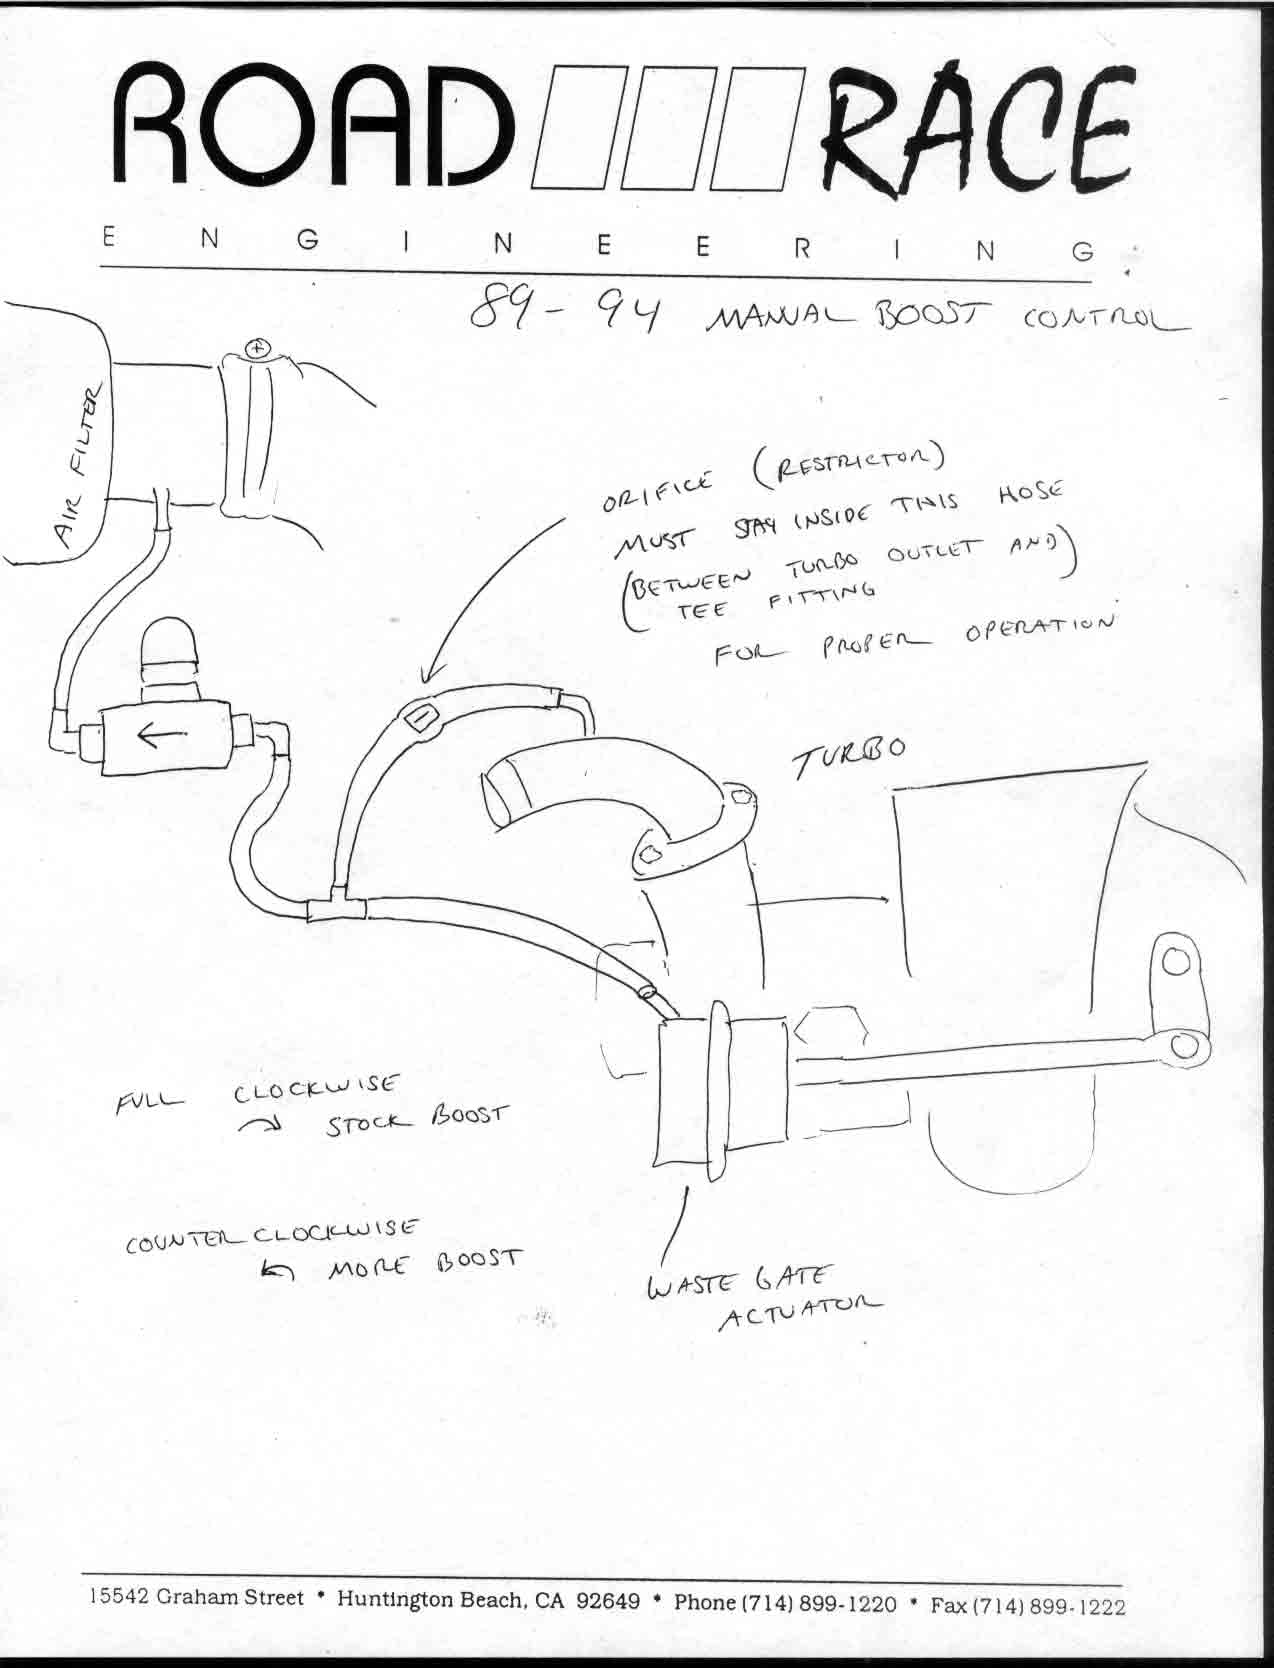 ROAD RACE
ENGINEERING
89-94 MANUAL BOOST CONTROL
AIR FILTER
ORIFICE (RESTRICTOR)
MUST STAY INSIDE THIS HOSE
(BETWEEN TURBO OUTLET AND)
TEE FITTING
FOR PROPER OPERATION
TURBO
FULL CLOCKWISE
STOCK BOOST
COUNTER CLOCKWISE
MORE BOOST
WASTE GATE
ACTUATOR
15542 Graham Street * Huntington Beach, CA 92649 * Phone (714) 899-1220 * Fax (714) 899-1222